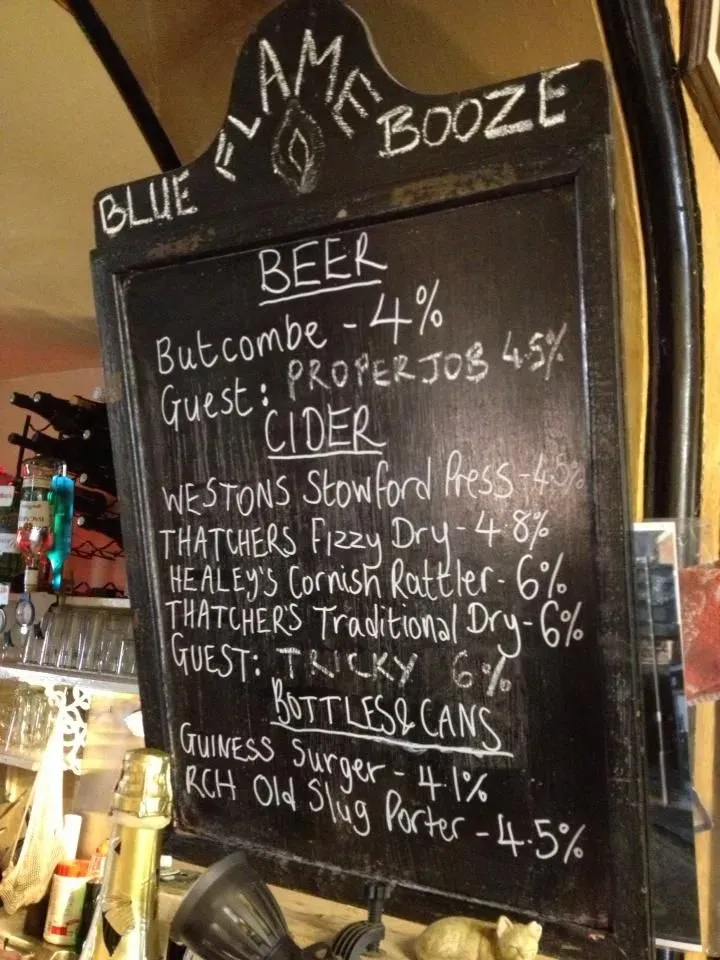 BLUE FLAME BOOZE
BEER
Butcombe - 4%
Guest: PROPER JOB 4.5%
CIDER
WESTONS Stowford Press - 4.5%
THATCHERS Fizzy Dry - 4.8%
HEALEY'S Cornish Rattler - 6%
THATCHER'S Traditional Dry - 6%
GUEST: TRICKY 6%
BOTTLES & CANS
GUINESS Surger - 4.1%
RCH Old Slug Porter - 4.5%